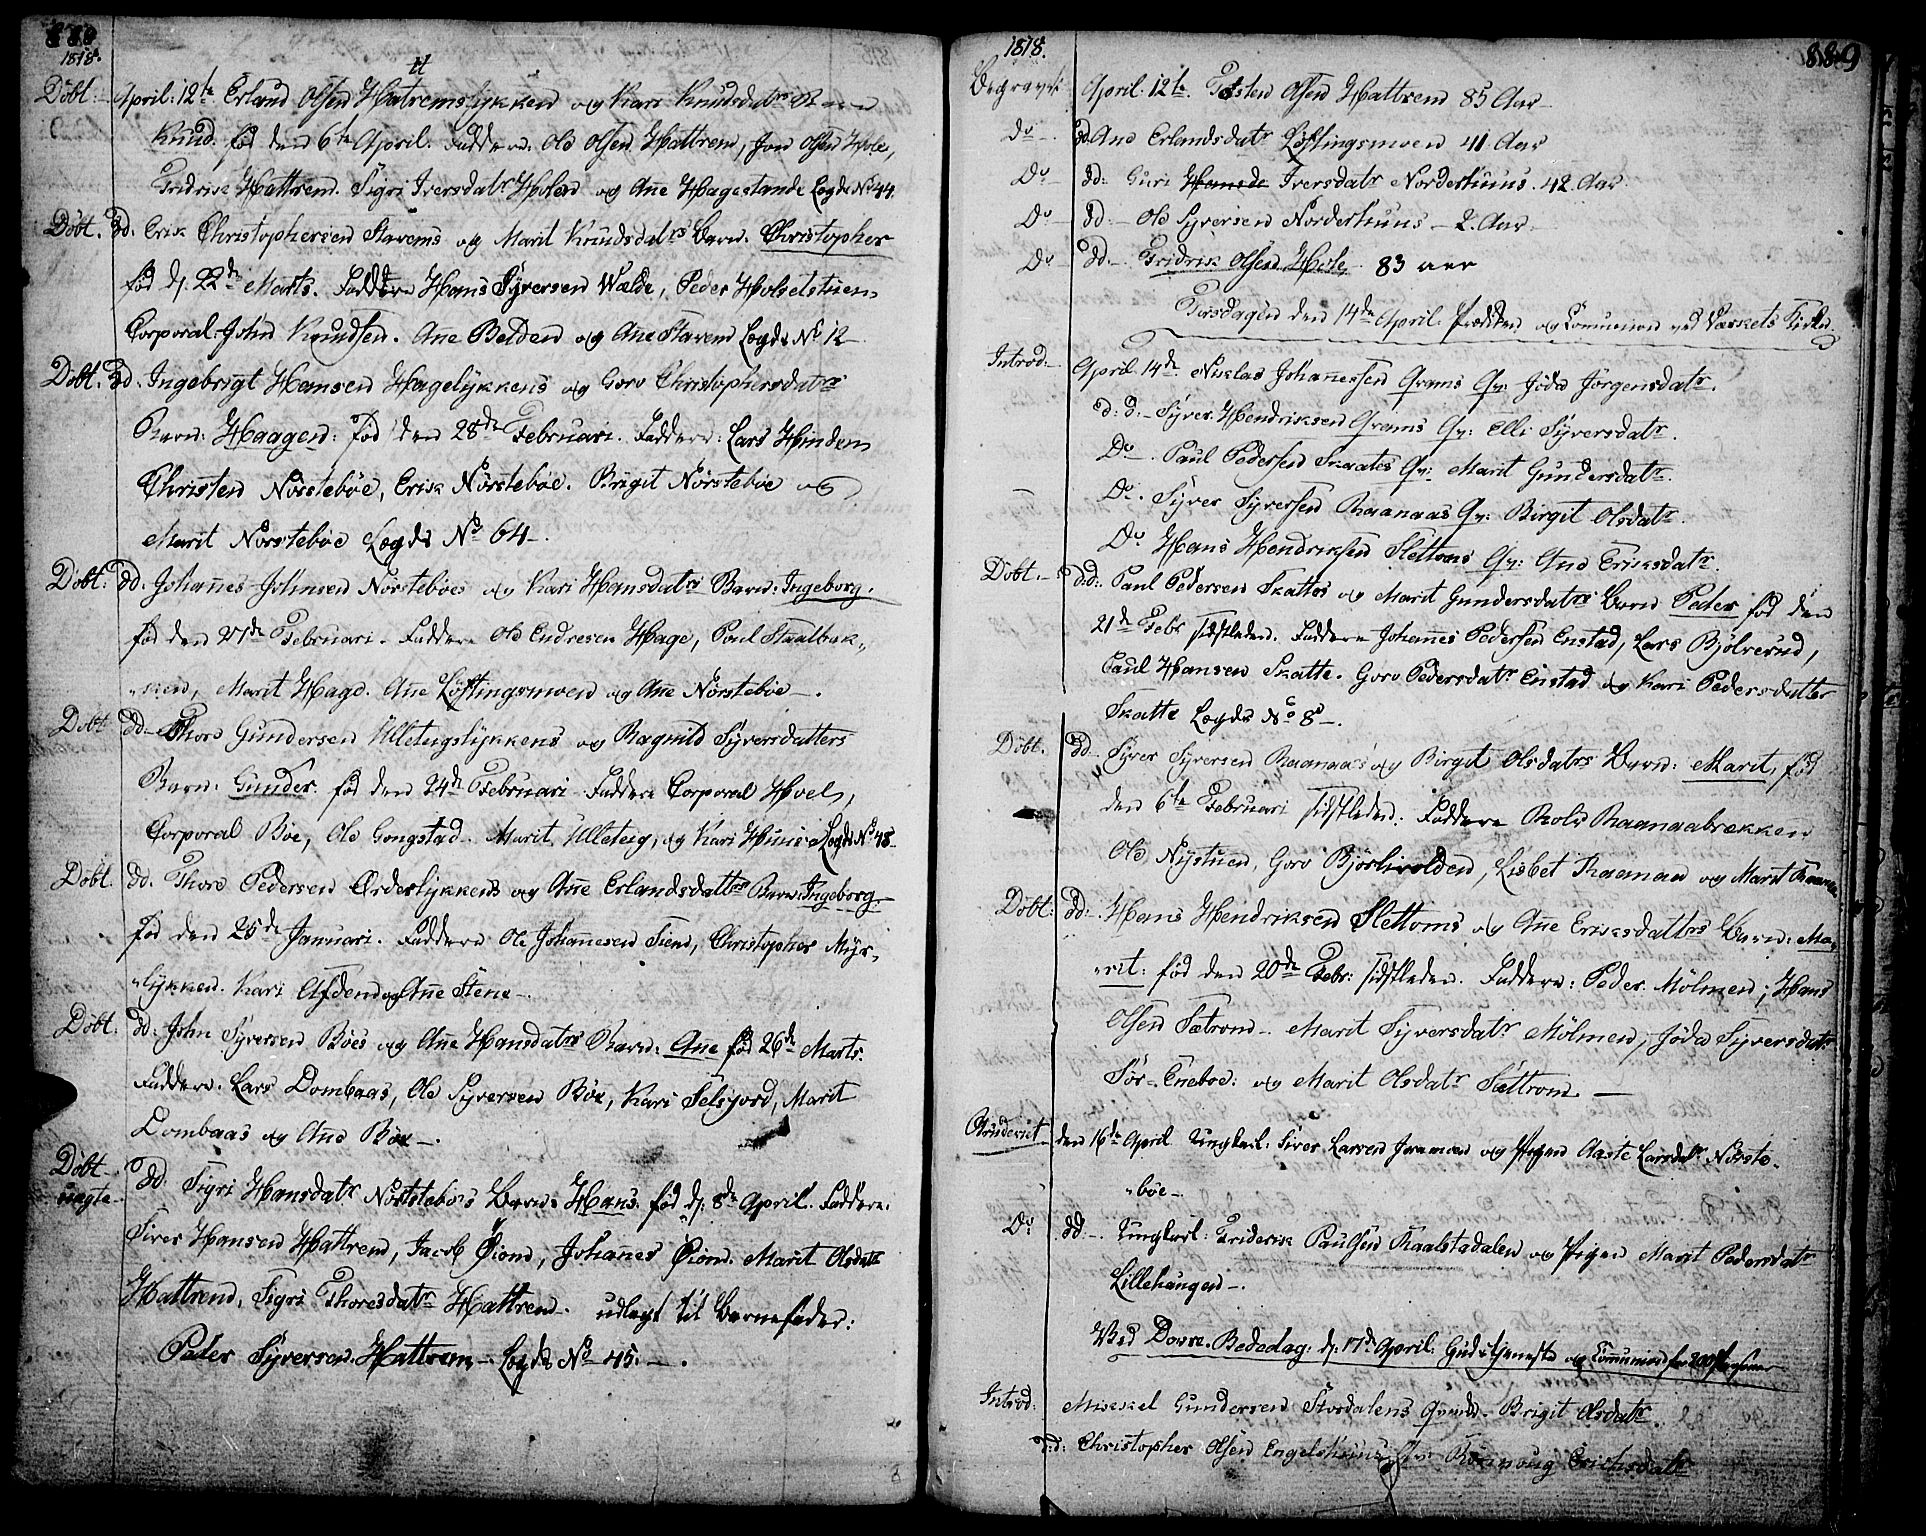 1818.
Döbt. April. 12te Erland Olsen Hatremslykken og Kari Knudsdatrs Barn
Knud. fød den 6te April. Faddere: Ole Olsen Hattrem, Jon Olsen Hole,
Fridrik Hattrem. Sigri Iversdatr Holen og Ane Hagestande Legds No 44.
Döbt. Dd. Erik Christophersen Stavems og Marit Knudsdatrs Barn. Christopher
fød d. 22de Marts. Faddere Hans Syversen Wælde, Peder Holsetstuen,
Corporal John Knudsen. Ane Belden og Ane Stavem Legds No 12
Döbt. Dd. Ingebrigt Hansen Hagelykkens og Goro Christophersdatrs
Barn: Haagen: fød den 28de Februari. Faddere: Lars Hindem,
Christen Nörsteböe, Erik Nörsteböe. Brigit Nörsteböe og
Marit Nörsteböe Legds No 64.
Döbt: Dd. Johannes Johnsen Nörsteböes og Kari Hansdatrs Barn: Ingeborg.
fød den 27de Februari. Faddere Ole Endresen Hage, Poul Staalbak„
„ken, Marit Hage. Ane Löftingsmoen og Ane Nörsteböe.
Döbt Dd. Thore Gundersen Ulletegslykkens og Ragnild Syversdatters
Barn: Gunder. fød den 24de Februari Faddere Corporal Hoel,
Corporal Böe, Ole Gongstad. Marit Ulleteig, og Kari Huus Legds No 48
Döbt. Dd. Thore Pedersen Ørderlykkens og Ane Erlandsdattrs Barn: Ingeborg
fød den 25de Januari. Faddere Ole Johannesen Tiem, Christopher Myr„
„lykken. Kari Afdem og Ane Stene.
Döbt: Dd: John Syversen Böes og Ane Hansdatrs Barn: Ane fød 26de Marts.
Faddere. Lars Dombaas, Ole Syversen Böe, Kari Selsjord, Marit
Dombaas og Ane Böe.
Döbt Dd. Sigri Hansdatr Nörsteböes Barn: Hans. fød d. 8de April. Faddere:
uægte
Siver Hansen Hattrem, Jacob Øiom, Johannes Øiom. Marit Olsdatr
Hattrem, Sigri Thoresdatr Hattrem. udlagt til Barnefader:
Peder Syversen Hattrem Legds No 45.
1818.
889
Begravet: April. 12te. Tosten Olsen Hattrem 85 Aar
Do Dd. Ane Erlandsdatr Löftingsmoen 41 Aar
Do Dd: Guri Iversdatr Norderhuus. 42. Aar.
Do Dd. Ole Syversen Norderhuus 2. Aar
Do Dd. Fridrik Olsen Hole 83 aar
Tirsdagen den 14de April. Prædiken og Communion ved Værkets Kirke.
Introd: April 14de Niklas Johannesen Grams Qv: Jöda Jörgensdatr.
d: d: Syver Hendriksen Grams Qv: Elli Syversdatr.
Do. Paul Pedersen Skaates Qv: Marit Gundersdatr.
Do. Syver Syversen Raanaas Qv: Birgit Olsdatr.
Do Hans Hendriksen Slettems Qv: Ane Eriksdatr.
Döbt. d:d: Paul Pedersen Skattes og Marit Gundersdatrs Barn Peder fød den
21de Febr sidstleden. Faddere Johannes Pedersen Enstad, Lars Bjölverud,
Paul Hansen Skatte. Goro Pedersdatr Enstad og Kari Pedersdatter
Skatte Legds No 8.
Döbt. Dd Syver Syversen Raanaas og Birgit Olsdatrs Barn: Marit, fød
den 6te Februari sidstleden: Faddere Rolv Raanaabrækken
Ole Nystuen, Goro Björlivolden, Lisbet Raanaa og Marit Raanaa
Döbt: Dd: Hans Hendriksen Slettoms og Ane Eriksdattrs Barn: Ma„
„rit: fød den 20de Febr: sidstleden. Faddere: Peder Mölmen; Hans
Olsen Sætrom. Marit Syversdatr Mölmen, Jöda Syversdatr
Sör-Eneboe: og Marit Olsdatr Sættrom.
Bruderiet den 16de April Ungkarl: Siver Larsen Joramoen og Pigen Aaste Larsdatr Nörste„
„böe.
Do Dd. Ungkarl: Friderik Paulsen Kaalstadalen og Pigen Marit Pedersdatr
Lillehaugen.
Ved Dovre. Bededag: d. 17de April. Gudstjeneste og Communion for 200
Introd: Mikkel Gundersen Stordalens Qvinde Brigit Olsdatr.
d:d: Christopher Olsen Engelshuus Qv: Rönnoug Erichsdatr